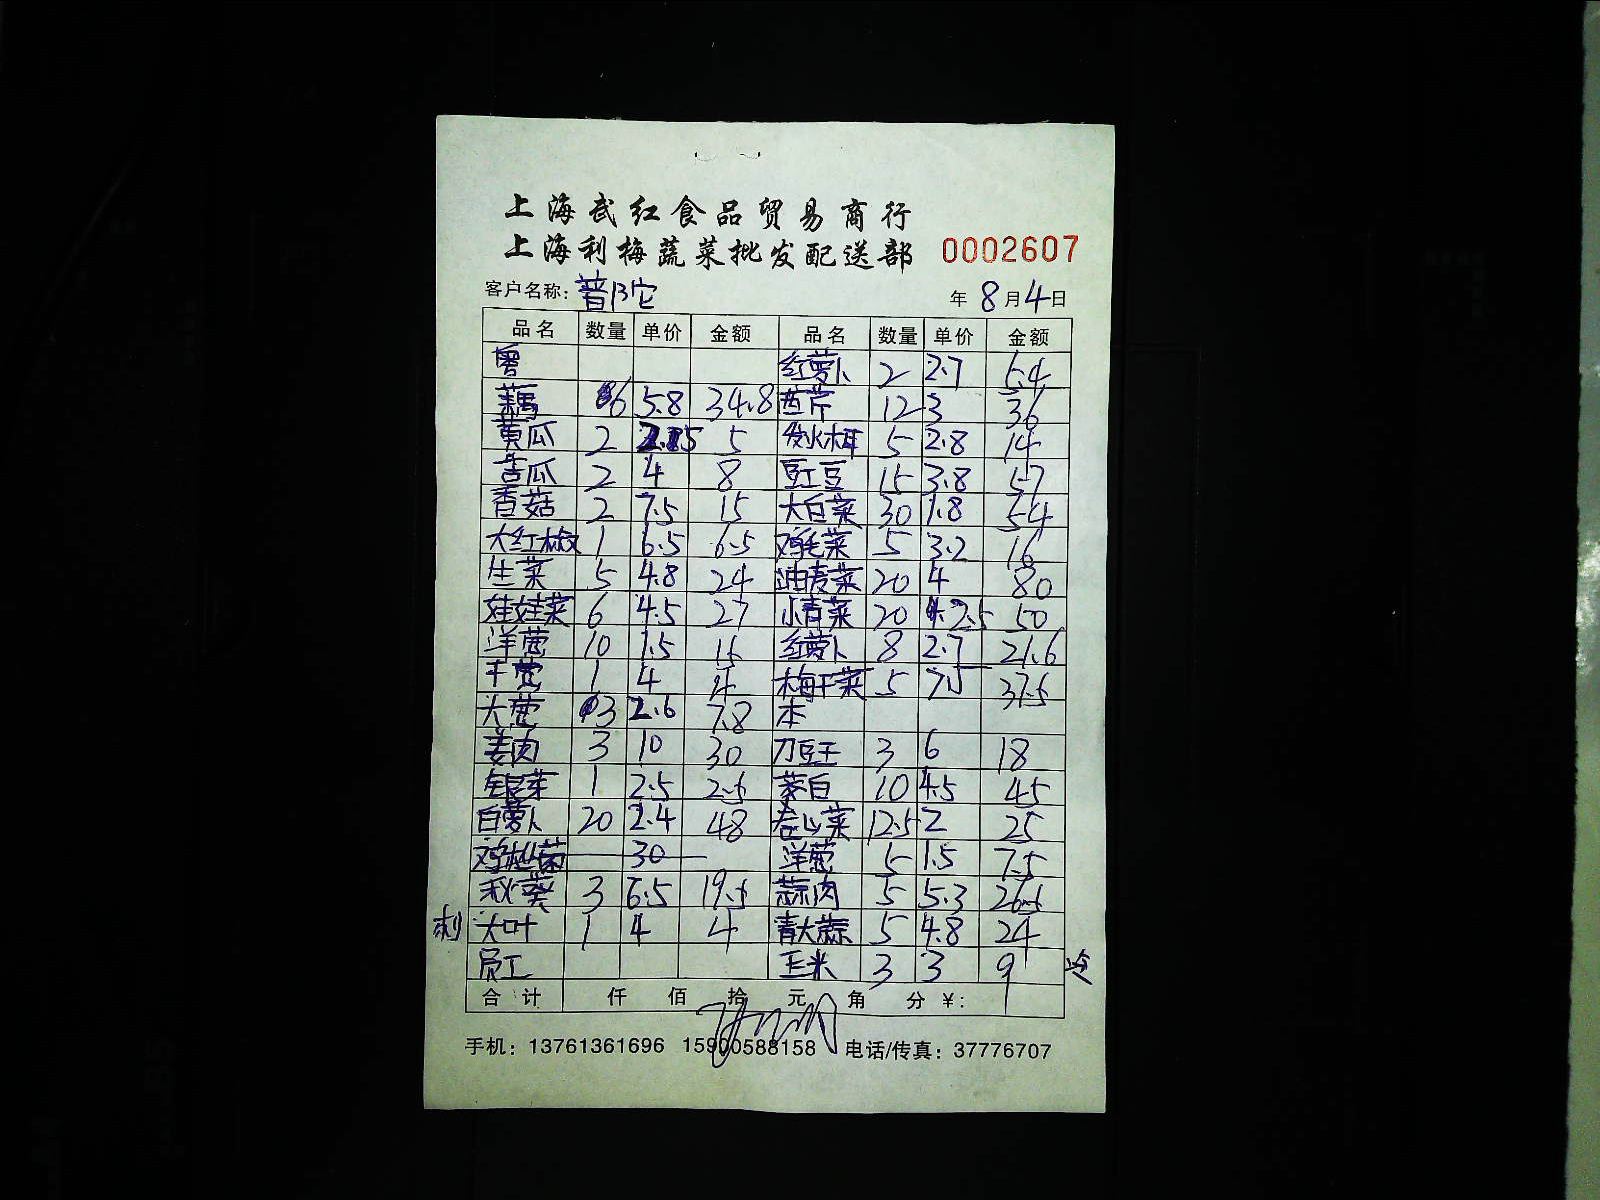 上海武红食品贸易商行
上海利梅蔬菜批发配送部 0002607
客户名称：普陀 年 8月4日
品名 数量 单价 金额 品名 数量 单价 金额
红萝卜 2 2.7 5.4
藕 6 5.8 34.8 西芹 12 3 36
黄瓜 2 5 发水木耳 5 2.8 14
苦瓜 2 4 8 豇豆 15 3.8 57
香菇 2 7.5 15 大白菜 30 1.8 54
大红椒 1 6.5 6.5 鸡毛菜 5 3.2 16
生菜 5 4.8 24 油麦菜 20 4 80
娃娃菜 6 4.5 27 小青菜 20 2.5 50
洋葱 10 1.5 15 红萝卜 8 2.7 21.6
干葱 1 4 4 梅干菜 5 7.5 37.5
大葱 3 2.6 7.8 本
姜肉 3 10 30 刀豆王 3 6 18
银芽 1 2.5 2.5 茭白 10 4.5 45
白萝卜 20 2.4 48 卷心菜 12.5 2 25
鸡枞菌 30 洋葱 5 1.5 7.5
秋葵 3 6.5 19.5 蒜肉 5 5.3 26.5
大叶 1 4 4 青大蒜 5 4.8 24
员工 玉米 3 3 9
合计 仟 佰 拾 元 角 分 ¥：
手机：13761361696 15900588158 电话/传真：37776707